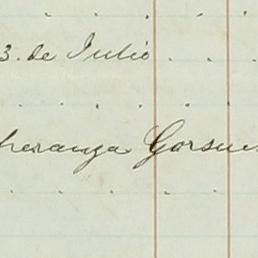 3. de Julio
heranza Garsu